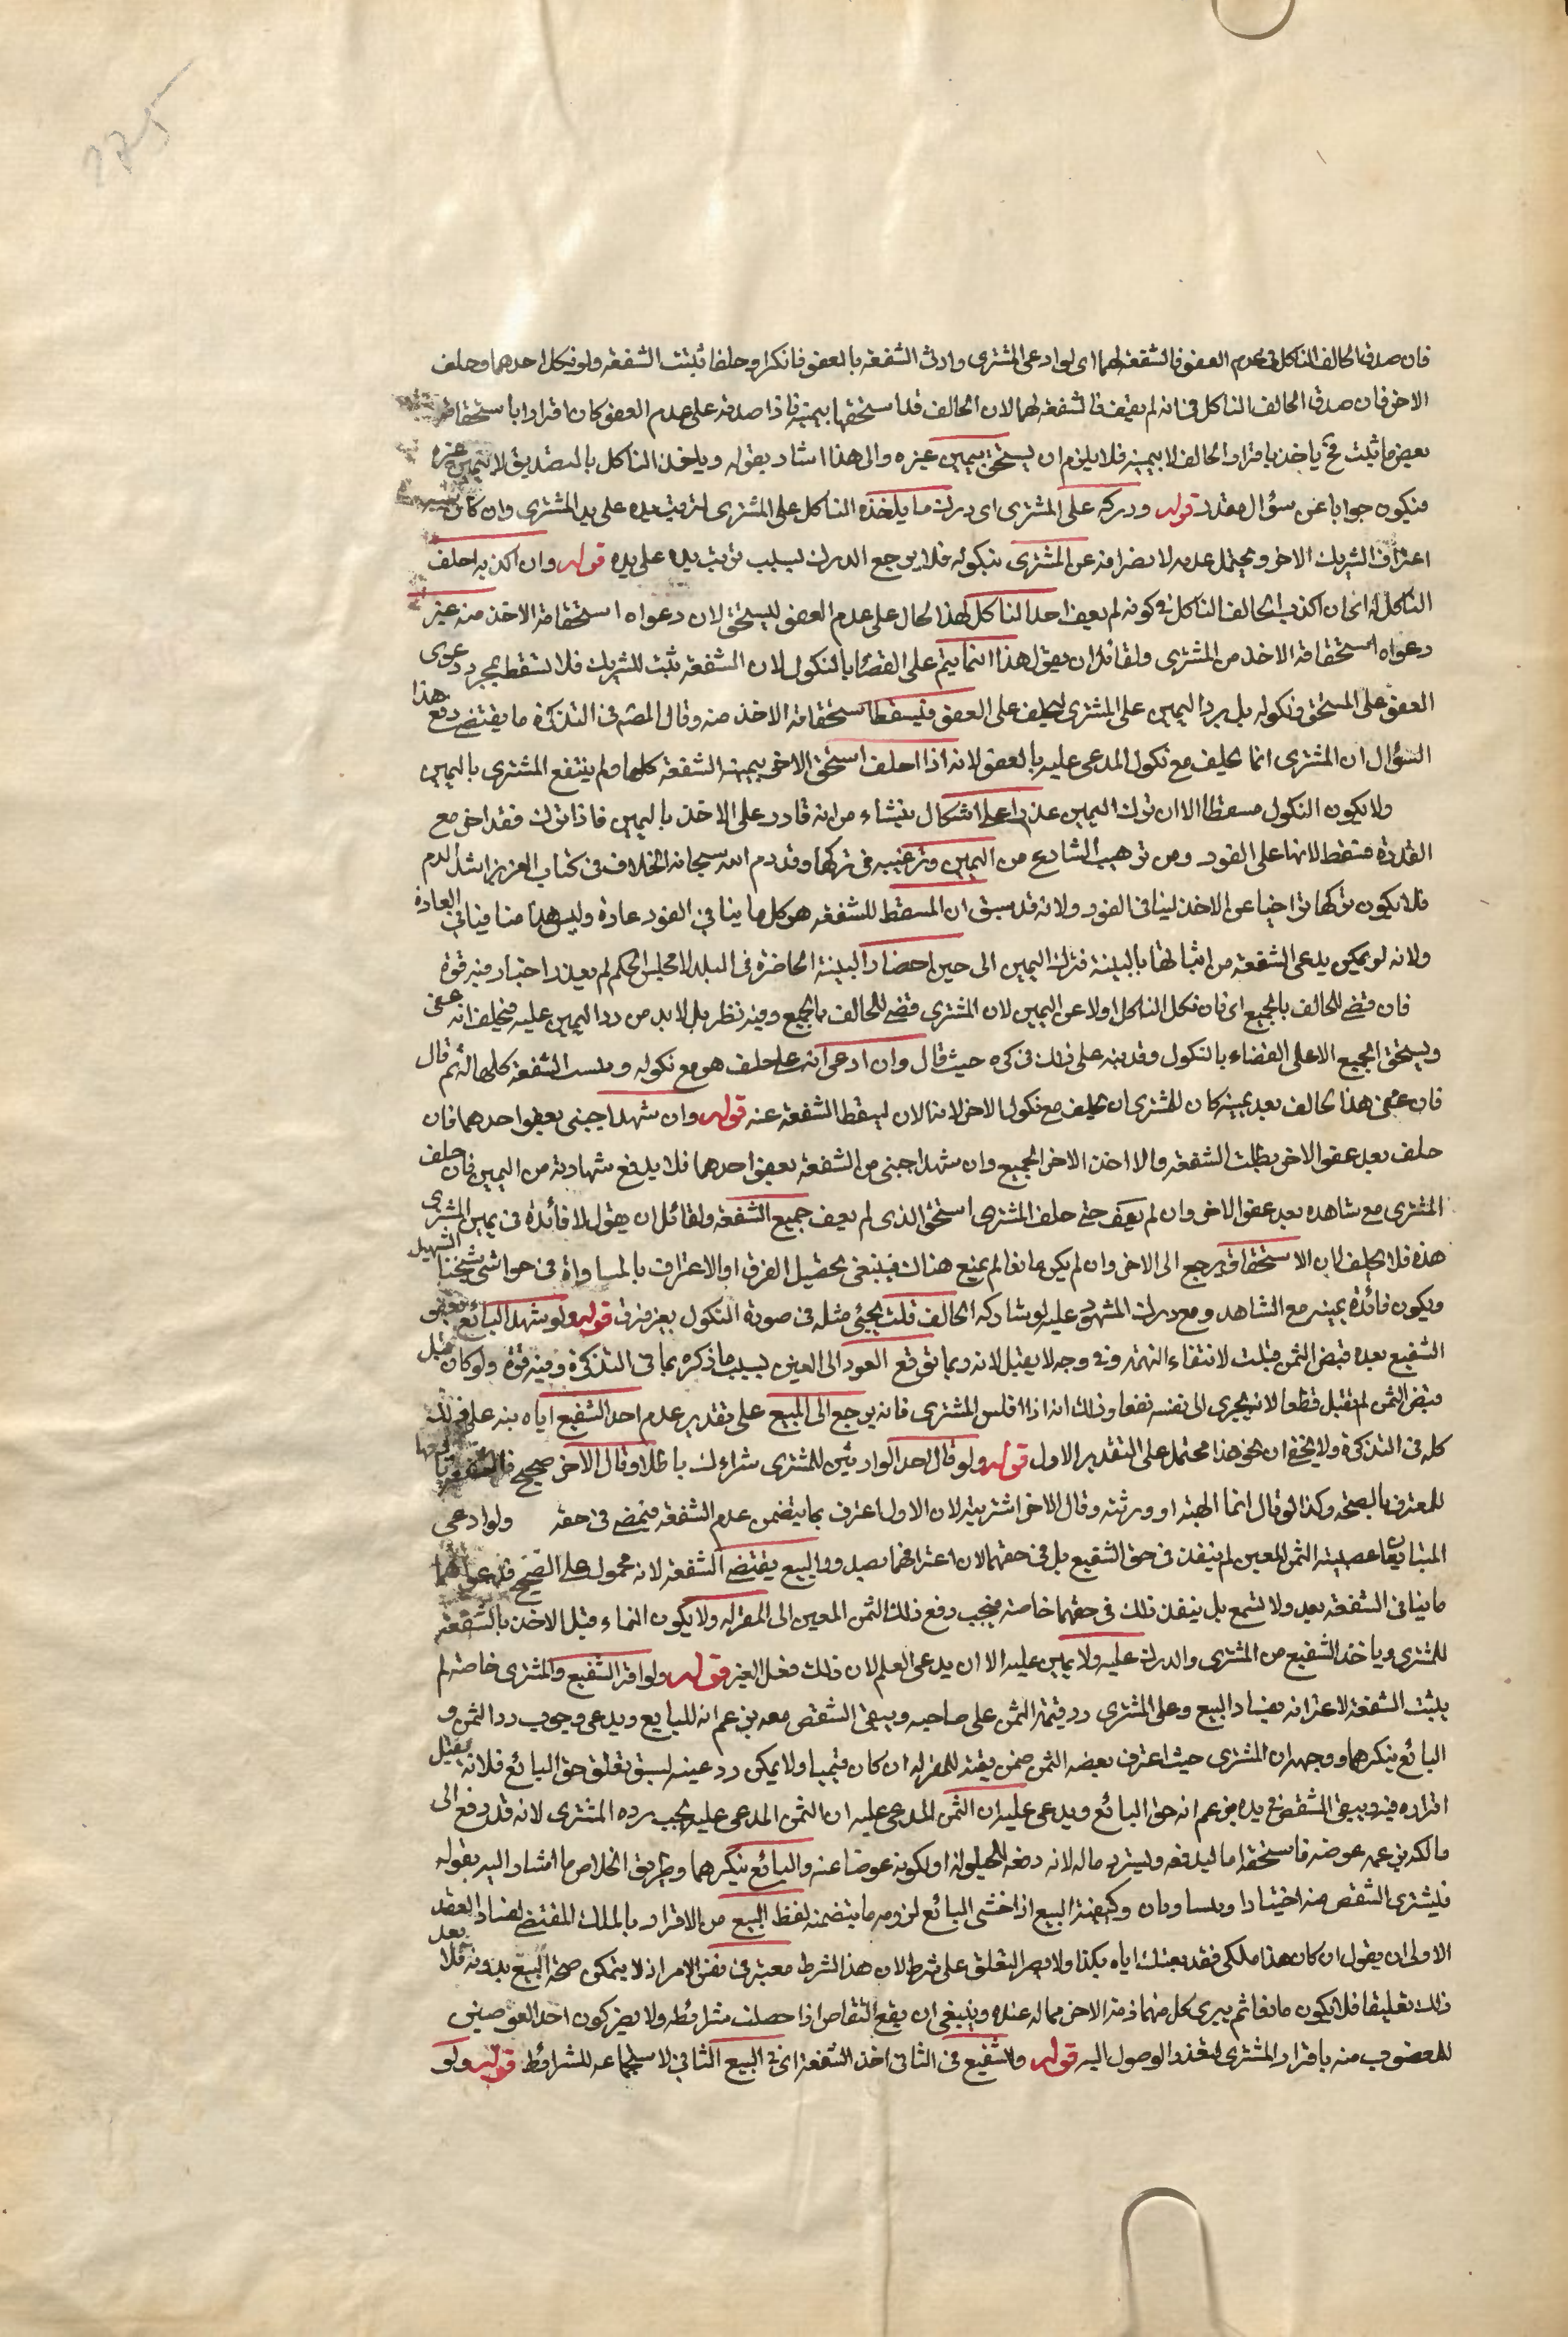 275
فان صدق الحالف الناكل فى عدم العفو فالشفعة لهما اى لو ادعى المشترى وارث الشفعة بالعفو فانكرا وحلفا ثبتت الشفعة ولو نكل احدهما وحلف
الاخر فان صدق الحالف الناكل فى انه لم يعف فالشفعة لهما لان الحالف قد استحقها بيمينه فاذا صدقه على عدم العفو كان اقرارا باستحقاقه
بعض ما ثبت فح ياخذ باقرار الحالف لا بيمينه فلا يلزم ان يستحق بيمين غيره والى هذا اشار بقوله وياخذ الناكل بالتصديق لا بيمين غيره
فيكون جوابا عن سؤال مقدر قوله ودركه على المشترى اى درك ما ياخذه الناكل على المشترى لترتب يده على يد المشترى وان كان
اعتراف الشريك الاخر ويحتمل عدمه لانصرافه عن المشترى بنكوله فلا يرجع الدرك لسبب ترتب يده على يده قوله وان اكذبه احلف
الناكل له اى ان اكذب الحالف الناكل فى كونه لم يعف احلف الناكل لهذا الحالف على عدم العفو ليستحق لان دعواه استحقاقه الاخذ منه غير
دعواه استحقاقه الاخذ من المشترى ولقائل ان يقول هذا انما يتم على القضاء بالنكول لان الشفعة تثبت للشريك فلا تسقط بمجرد دعوى
العفو على المستحق ونكوله بل يرد اليمين على المشترى ليحلف على العفو فيسقط استحقاقه الاخذ منه وقال المصنف فى التذكرة ما يقتضى دفع هذا
السؤال ان المشترى انما يحلف مع نكول المدعى عليه بالعفو لانه اذا احلف استحق الاخر بيمينه الشفعة كلها ولم ينتفع المشترى باليمين
ولا يكون النكول مسقطا الا ان ترك اليمين عذر اعلى اشكال ينشاء من انه قادر على الاخذ باليمين فاذا ترك فقد اخر مع
القدرة فتسقط لانها على الفور ومن ترهيب الشارع من اليمين وترغيبه فى تركها وقد ذم الله سبحانه الحلاف فى كتابه العزيز اشد الذم
فلا يكون تركها تراخيا عن الاخذ لينافى الفور ولانه قد سبق ان المسقط للشفعة هو كل ما ينافى الفور عادة وليس هذا منافيا فى العادة
ولانه لو تمكن مدعى الشفعة من اثباتها بالبينة فترك اليمين الى حين احضار البينة الحاضرة فى البلد لا مجلس الحكم لم يعد راخيا وفيه قوة
فان قضى للحالف بالجميع اى فان نكل الناكل اولا عن اليمين لان المشترى قضى للحالف بالجميع وفيه نظر بل لا بد من رد اليمين عليه فيحلف انه عفى
ويستحق الجميع الا على القضاء بالنكول وقد نبه على ذلك فى كره حيث قال وان ادعى انه عفا حلف هو مع نكوله وثبتت الشفعة كلها له ثم قال
فان عفى هذا الحالف بعد يمينه كان للمشترى ان يحلف مع نكول الاخر لانه الان يسقط الشفعة عنه قوله وان شهد اجنبى بعفو احدهما فان
حلف بعد عفو الاخر بطلت الشفعة والا اخذ الاخر الجميع وان شهد اجنبى من الشفعة بعفو احدهما فلا بد مع شهادته من اليمين فان حلف
المشترى مع شاهده بعد عفو الاخر وان لم يعف حتى حلف المشترى استحق الذى لم يعف جميع الشفعة ولقائل ان يقول لا فائدة فى يمين المشترى
هذه فلا يحلف لان الاستحقاق يرجع الى الاخر وان لم يكن مانعا لم يمنع هناك فينبغى تحصيل الفرق او الاعتراف بالمساواة فى حواشى شيخنا الشهيد
ويكون فائدة يمينه مع الشاهد ومع درك المشهود عليه لو شاركه الحالف قلت يجئى مثله فى صورة النكول بغير فرق قوله ولو شهد البائع بعفو
الشفيع بعده قبض الثمن قبلت لانتفاء التهمة وفى وجه لا يقبل لانه ربما توقع العود الى العين لسبب ما ذكره بها فى التذكرة وفيه قوة ولو كان قبل
قبض الثمن لم تقبل قطعا لانه يجرى الى نفسه نفعا وذلك انه اذا افلس المشترى فانه يرجع الى المبيع على تقدير عدم اخذ الشفيع اياه نبه على ذلك
كله فى التذكرة ولا يخفى ان نحو هذا محتمل على التقدير الاول قوله ولو قال احد الوارثين للمشترى شراءك باطل وقال الاخر صحيح فالشفعة
للمعترف بالصحة وكذا لو قال انما اتهبته او ورثته وقال الاخر اشتريته لان الاول اعترف بما يتضمن عدم الشفعة فيمضى فى حقه ولو ادعى
المتبايعان غصبية الثمن المعين لم ينفذ فى حق الشفيع بل فى حقهما لان اعترافهما بصدور البيع يقتضى الشفعة لانه محمول على الصحيح فدعواهما
ما ينافى الشفعة بعد ولا تسمع بل ينفذ ذلك فى حقهما خاصة فيجب دفع ذلك الثمن المعين الى المقر له ولا يكون النماء قبل الاخذ بالشفعة
للمشترى وياخذ الشفيع من المشترى والدرك عليه ولا يمين عليه الا ان يدعى العلم لان ذلك فعل الغير قوله ولو اقر الشفيع والمشترى خاصة لم
يثبت الشفعة لاعترافه بفساد البيع وعلى المشترى رد قيمة الثمن على صاحبه ويبقى الشقص معه بزعم انه للبايع ويدعى وجوب رد الثمن و
البائع ينكرهما ووجهه ان المشترى حيث اعترف بغصبه الثمن ضمن قيمته للمقر له ان كان قيميا ولا يمكن رد عينه لسبق تعلق حق البائع فلا نه يقبل
اقراره فيه ويبقى الشقص فى يده بزعم انه حق البائع ويدعى عليه ان الثمن المدعى عليه ان الثمن المدعى عليه يجب رده المشترى لانه قد دفع الى
مالكه بزعمه عوضه فاستحقه اما ليدفعه ويسترد ماله لانه دفعه للحيلولة او لكونه عوضا عنه والبائع ينكرهما وطريق الخلاص ما اشار اليه بقوله
فليشترى الشقص منه اختيارا ويتساويان وكيفية البيع اذا خشى البائع لزومه ما يتضمنه لفظ البيع من الاقرار بالملك المقتضى لفساد العقد
الاول ان يقول ان كان هذا ملكى فقد بعتك اياه بكذا ولا يضر التعلق على شرط لان هذا الشرط معتبر فى نفس الامر اذ لا يتمكن صحة البيع بدونه فلا يعد
ذلك تعليقا فلا يكون مانعا ثم يبرى كل منهما ذمة الاخر مما له عنده وينبغى ان يقع التقاص اذا حصلت شرائطه ولا يضر كون احد العوضين
للمغصوب منه باقرار المشترى لتعذر الوصول اليه قوله وللشفيع فى الثانى اخذ الشفعة اى فى البيع الثانى لاستجماعه للشرائط قوله ولو